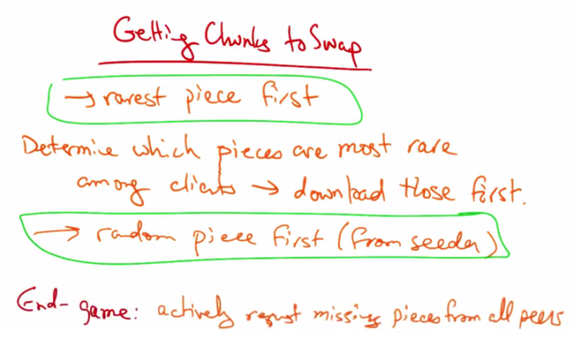 Getting Chunks to Swap
→ rarest piece first
Determine which pieces are most rare
among clients → download those first.
→ random piece first (from seeder)
End-game: actively request missing pieces from all peers